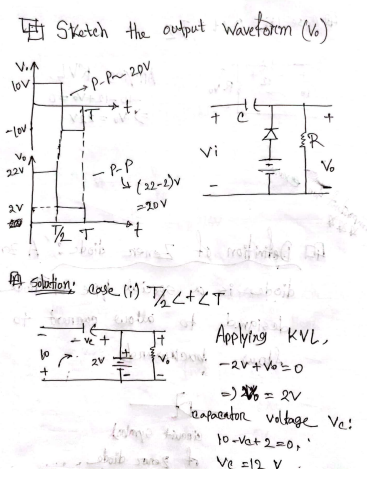 Sketch the output waveform (Vo)
Vo
10V
P-P ~ 20V
T
t.
-10V
Vo
22V
P-P
↳ (22-2)V
=20V
2V
T/2 T t
+ C +
Vi R Vo
- -
Solution: case (i) T/2 < t < T
- Vc + +
10 2V Vo
+ -
Applying KVL,
-2V + Vo = 0
=) Vo = 2V
capacator voltage Vc:
10 - Vc + 2 = 0,
Vc = 12 V